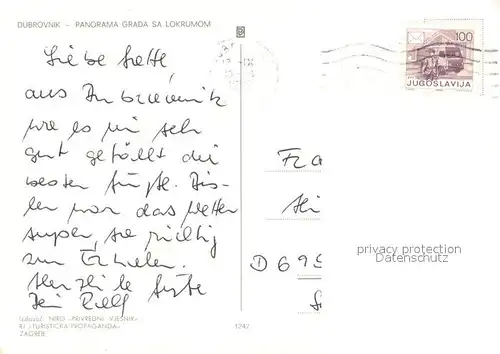 DUBROVNIK – PANORAMA GRADA SA LOKRUMOM
100
JUGOSLAVIJA
Liebe
aus Dubrovnik
wo es mir sehr
gut gefällt die
besten Grüße. Bis-
her war das Wetter
super, so richtig
zum Erholen.
Herzliche Grüße
Dein Rolf
Fra
D 695
privacy protection
Datenschutz
Izdavač: NIRO »PRIVREDNI VJESNIK«
RJ »TURISTIČKA PROPAGANDA«
ZAGREB
1242